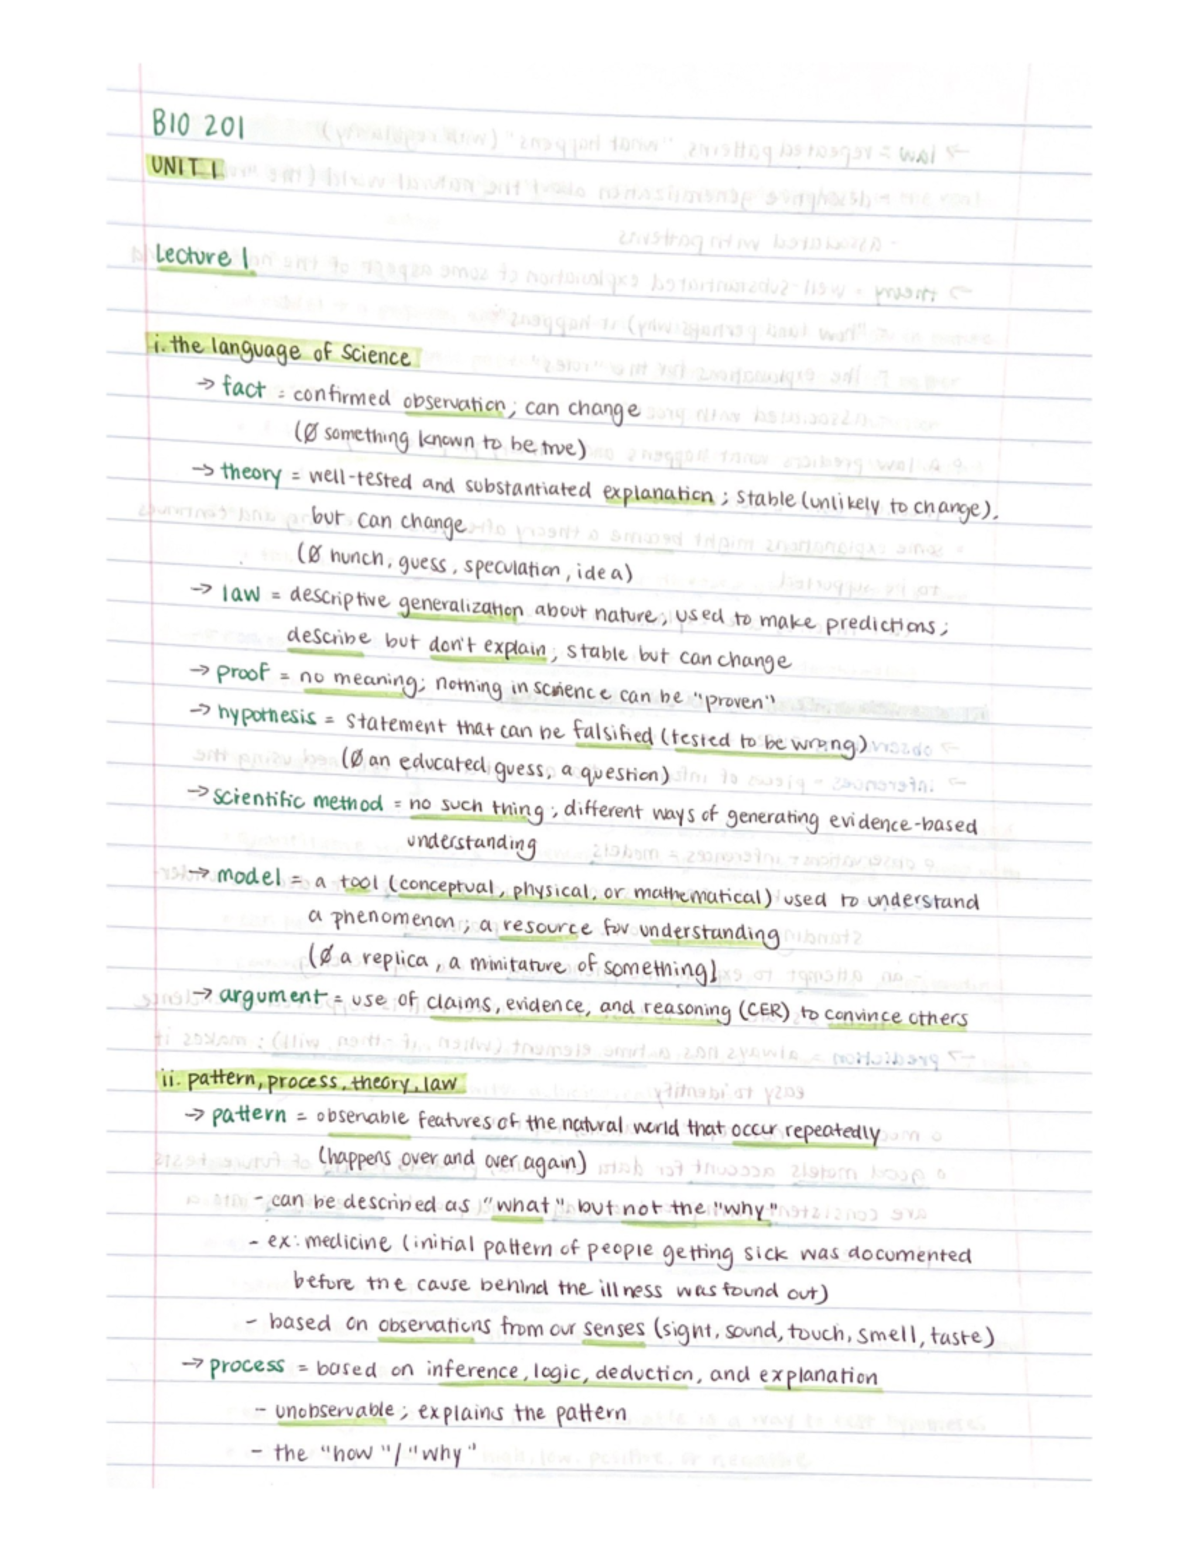 BIO 201
UNIT 1
Lecture 1
i. the language of science
→ fact = confirmed observation; can change
(Ø something known to be true)
→ theory = well-tested and substantiated explanation; stable (unlikely to change),
but can change
(Ø hunch, guess, speculation, idea)
→ law = descriptive generalization about nature; used to make predictions;
describe but don't explain; stable but can change
→ proof = no meaning; nothing in science can be "proven"
→ hypothesis = statement that can be falsified (tested to be wrong)
(Ø an educated guess, a question)
→ scientific method = no such thing; different ways of generating evidence-based
understanding
→ model = a tool (conceptual, physical, or mathematical) used to understand
a phenomenon; a resource for understanding
(Ø a replica, a minitature of something)
→ argument = use of claims, evidence, and reasoning (CER) to convince others
ii. pattern, process, theory, law
→ pattern = observable features of the natural world that occur repeatedly
(happens over and over again)
- can be described as "what" but not the "why"
- ex: medicine (initial pattern of people getting sick was documented
before the cause behind the illness was found out)
- based on observations from our senses (sight, sound, touch, smell, taste)
→ process = based on inference, logic, deduction, and explanation
- unobservable; explains the pattern
- the "how"/"why"